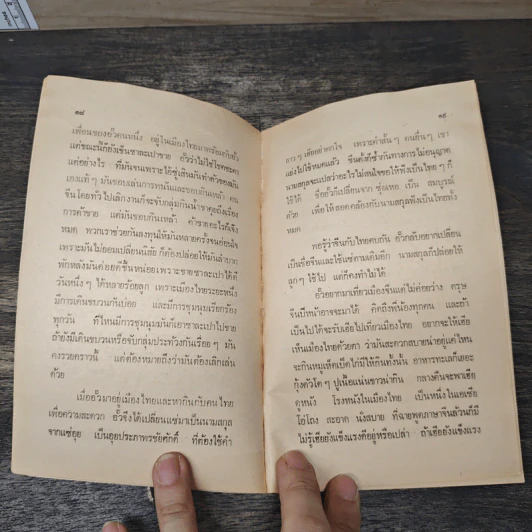 ๑๘
เพื่อนของอั๊วคนหนึ่ง อยู่ในเมืองไทยมาพร้อมกับอั๊ว
แต่ขณะนี้ก็ยังเข็นซาละเปาขาย อั๊วว่าไม่ใช่โชคชะตา
แต่อย่างไร ที่มันจนเพราะ
เองแท้ๆ มันชอบเล่นการพนันและชอบกินเหล้า คน
จีนโดยทั่วไปเลิกงานก็จะจับกลุ่มกินน้ำชาคุยถึงเรื่อง
การค้าขาย แต่มันชอบกินเหล้า ค้าขายอะไรก็เจ๊ง
หมด พวกเราช่วยกันลงทุนให้มันหลายครั้งจนอ่อนใจ
เพราะมันไม่ยอมเปลี่ยนนิสัย ก็ต้องปล่อยให้มันลำบาก
พักหลังมันค่อยดีขึ้นหน่อยเพราะขายซาละเปาได้ดี
วันหนึ่งๆ ได้หลายร้อยลูก เพราะเมืองไทยระยะหนึ่ง
มีการเดินขบวนกันบ่อย และมีการชุมนุมเรียกร้อง
ทุกวัน ที่ไหนมีการชุมนุมมันก็เอาซาละเปาไปขาย
ถ้ายังมีเดินขบวนหรือจับกลุ่มประท้วงกันเรื่อยๆ มัน
คงรวยคราวนี้ แต่ต้องหมายถึงว่ามันต้องเลิกเล่น
ด้วย
เมื่ออั๊วมาอยู่เมืองไทยและหากินกับคนไทย
เพื่อความสะดวก อั๊วจึงได้เปลี่ยนแซ่มาเป็นนามสกุล
จากแซ่อุย เป็นอุยประภาพรชัยศักดิ์ ที่ต้องใช้คำ
๑๙
ยาวๆ เพราะคำสั้นๆ คนอื่นๆ เขา
แย่งไปใช้หมดแล้ว ขืนตั้งซ้ำกันทางการไม่อนุญาต
นามสกุลจะแปลว่าอะไรไม่สนใจขอให้ฟังเป็นไทยๆ ก็
ใช้ได้ ชื่ออั๊วก็เปลี่ยนจาก เป็น สมบูรณ์
ด้วย เพื่อให้สอดคล้องกับนามสกุลฟังเป็นไทยทั้ง
หมด
คอรู้ว่าจีนกับไทยคบกัน อั๊วกลับอยากเปลี่ยน
เป็นชื่อจีนและใช้แซ่ตามเดิมอีก นามสกุลก็ปล่อยให้
ลูกๆ ใช้ไป แต่ก็คงทำไม่ได้
อั๊วอยากมาเที่ยวเมืองจีนแต่ไม่ค่อยว่าง ตรุษ
จีนปีหน้าอาจจะมาได้ คิดถึงพี่น้องทุกคน และถ้า
เป็นไปได้จะรับเฮียไปเที่ยวเมืองไทย อยากจะให้เฮีย
เห็นเมืองไทยด้วยตา ว่ามันสะดวกสบายน่าอยู่แค่ไหน
จะกินหมูเห็ดเป็ดไก่มีให้กินทั้งนั้น อาหารทะเลก็เยอะ
กุ้งตัวโตๆ ปูเนื้อแน่นขาวน่ากิน กลางคืนจะพาเฮีย
ดูหนัง โรงหนังในเมืองไทย เป็นหนึ่งในเอเซีย
โอ่โถง สะอาด นั่งสบาย ที่ฉายพูดภาษาจีนล้วนก็มี
ไม่รู้เฮียยังแข็งแรงดีอยู่หรือเปล่า ถ้าเฮียยังแข็งแรง